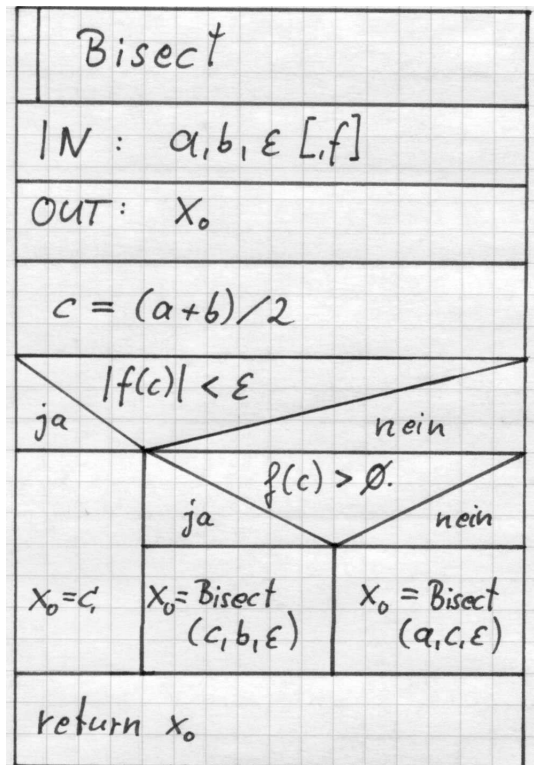 Bisect
IN: a, b, ε [,f]
OUT: x₀
c = (a+b)/2
|f(c)| < ε
ja
nein
f(c) > Ø.
ja
nein
x₀=c,
x₀=Bisect
(c,b,ε)
x₀ = Bisect
(a,c,ε)
return x₀